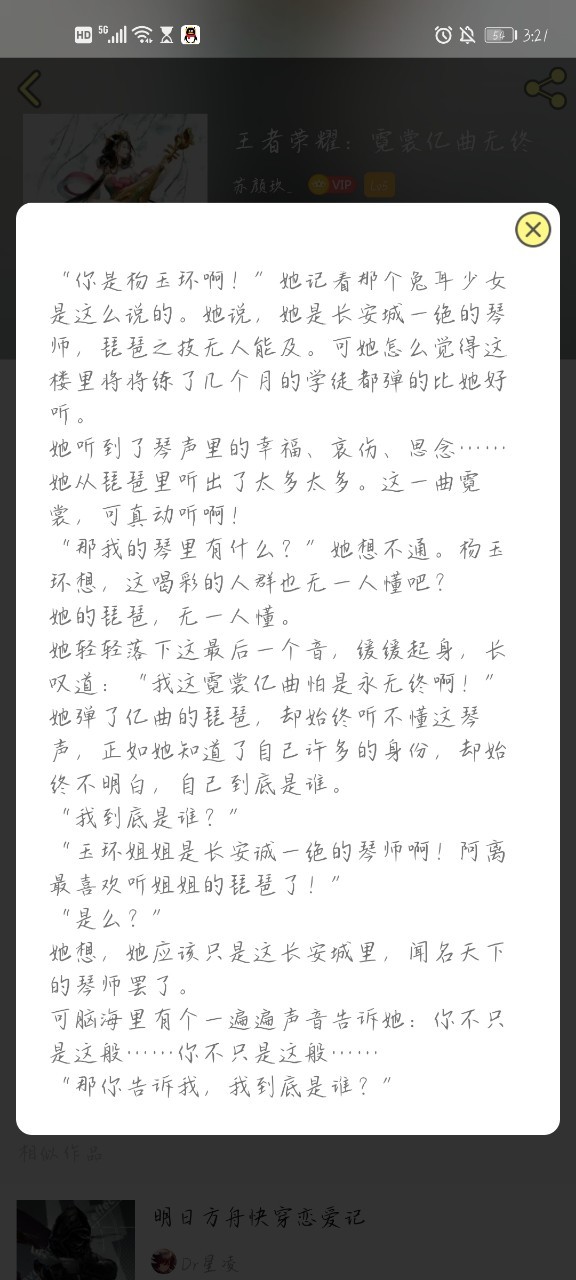 HD 5G 54 3:21
王者荣耀：霓裳亿曲无终
苏颜玖_ VIP
“你是杨玉环啊！”她记着那个兔耳少女
是这么说的。她说，她是长安城一绝的琴
师，琵琶之技无人能及。可她怎么觉得这
楼里将将练了几个月的学徒都弹的比她好
听。
她听到了琴声里的幸福、哀伤、思念……
她从琵琶里听出了太多太多。这一曲霓
裳，可真动听啊！
“那我的琴里有什么？”她想不通。杨玉
环想，这喝彩的人群也无一人懂吧？
她的琵琶，无一人懂。
她轻轻落下这最后一个音，缓缓起身，长
叹道：“我这霓裳亿曲怕是永无终啊！”
她弹了亿曲的琵琶，却始终听不懂这琴
声，正如她知道了自己许多的身份，却始
终不明白，自己到底是谁。
“我到底是谁？”
“玉环姐姐是长安诚一绝的琴师啊！阿离
最喜欢听姐姐的琵琶了！”
“是么？”
她想，她应该只是这长安城里，闻名天下
的琴师罢了。
可脑海里有个一遍遍声音告诉她：你不只
是这般……你不只是这般……
“那你告诉我，我到底是谁？”
相似作品
明日方舟快穿恋爱记
Dr星凌